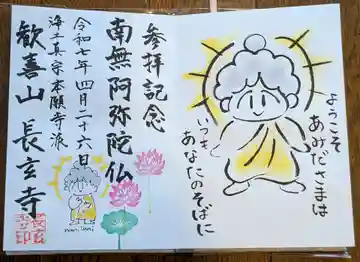 ようこそ
あみださまは
いつも
あなたのそばに
参拝記念
南無阿弥陀仏
令和七年四月二十六日
浄土真宗本願寺派
歓喜山 長玄寺